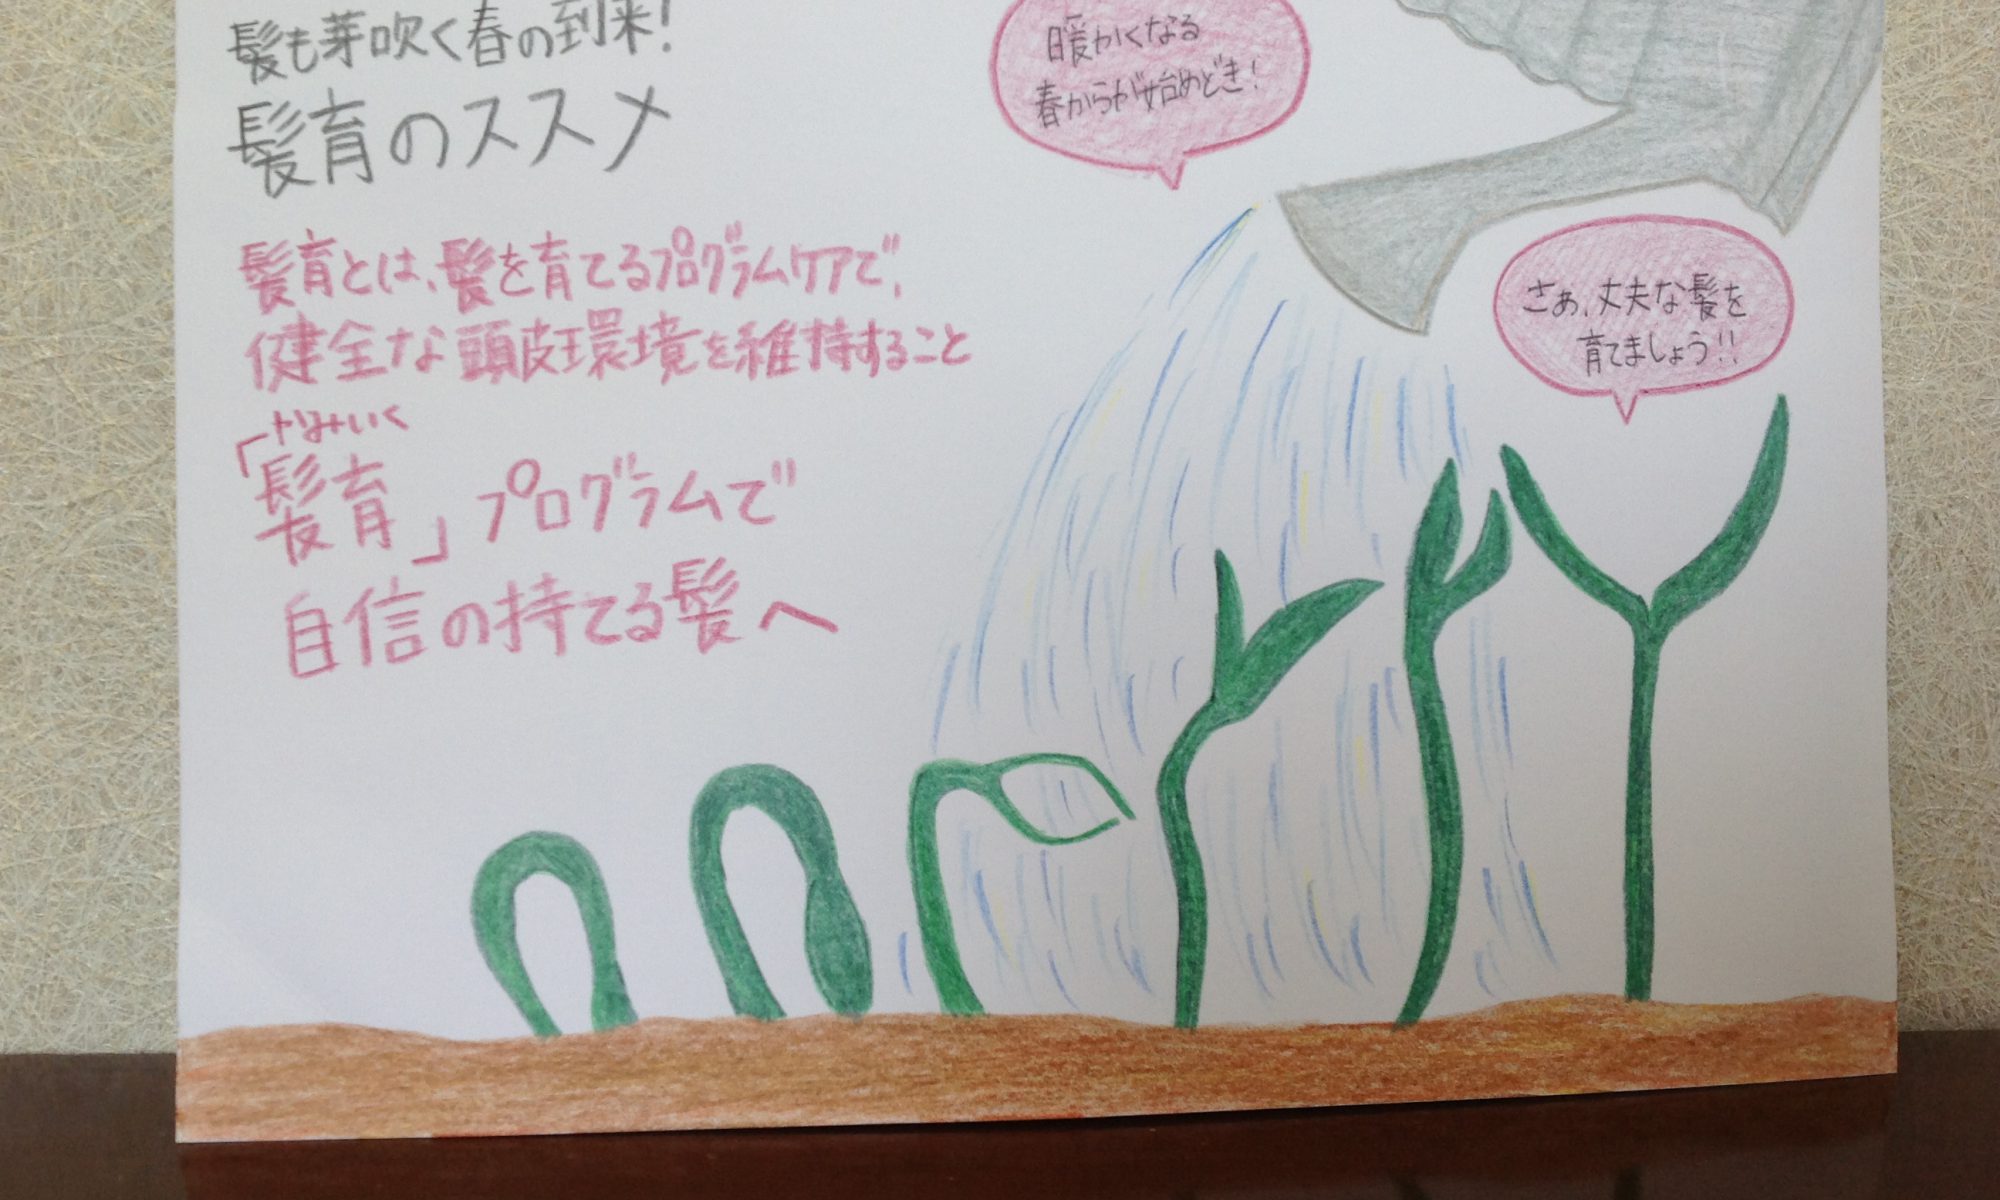 髪も芽吹く春の到来!
髪育のススメ
髪育とは、髪を育てるプログラムケアで、
健全な頭皮環境を維持すること
かみいく
「髪育」プログラムで
自信の持てる髪へ
暖かくなる
春からが始めどき!
さあ、丈夫な髪を
育てましょう!!